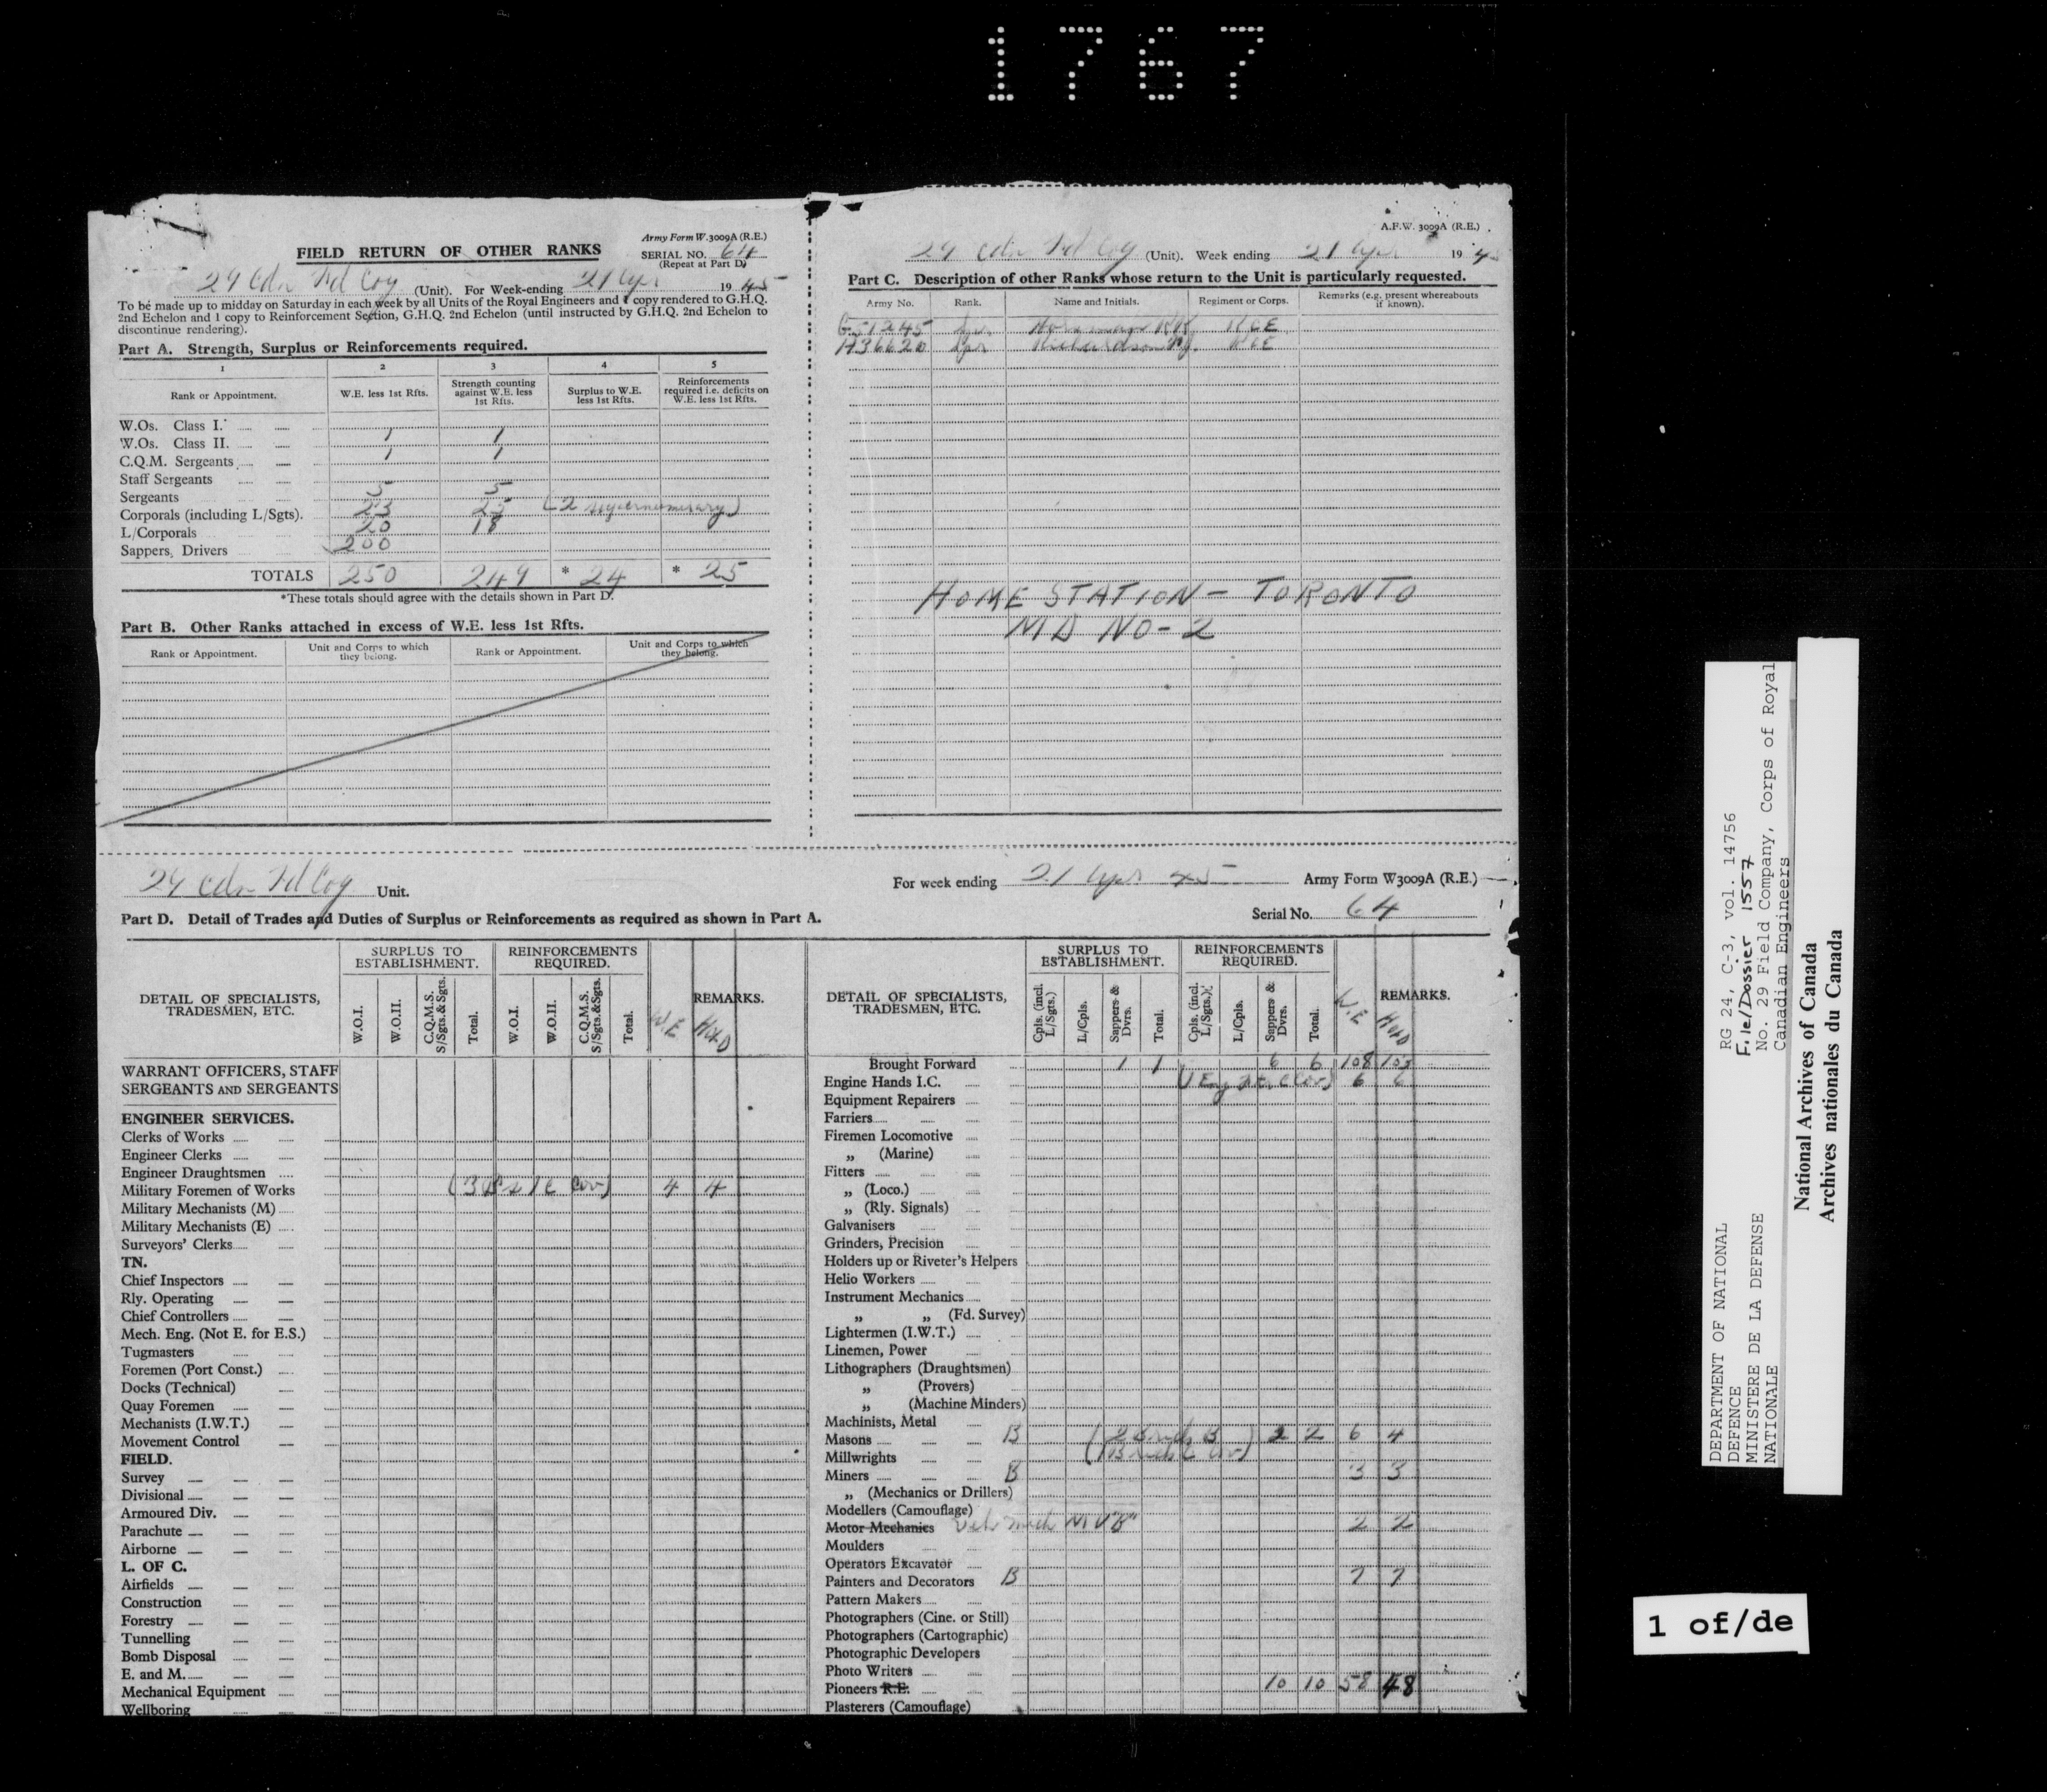 1767
Army Form W.3009A (R.E.)
FIELD RETURN OF OTHER RANKS
SERIAL NO. 64
(Repeat at Part D)
29 Cdn Fd Coy (Unit). For Week-ending 21 Apr 1945
To be made up to midday on Saturday in each week by all Units of the Royal Engineers and 1 copy rendered to G.H.Q.
2nd Echelon and 1 copy to Reinforcement Section, G.H.Q. 2nd Echelon (until instructed by G.H.Q. 2nd Echelon to
discontinue rendering).
Part A. Strength, Surplus or Reinforcements required.
1 2 3 4 5
Rank or Appointment. W.E. less 1st Rfts. Strength counting against W.E. less 1st Rfts. Surplus to W.E. less 1st Rfts. Reinforcements required i.e. deficits on W.E. less 1st Rfts.
W.Os. Class I.
W.Os. Class II. 1 1
C.Q.M. Sergeants 1 1
Staff Sergeants
Sergeants 5 5
Corporals (including L/Sgts). 23 25 (2 supernumerary)
L/Corporals 20 18
Sappers, Drivers 200
TOTALS 250 249 * 24 * 25
*These totals should agree with the details shown in Part D.
Part B. Other Ranks attached in excess of W.E. less 1st Rfts.
Rank or Appointment. Unit and Corps to which they belong. Rank or Appointment. Unit and Corps to which they belong.
A.F.W. 3009A (R.E.)
29 Cdn Fd Coy (Unit). Week ending 21 Apr 194
Part C. Description of other Ranks whose return to the Unit is particularly requested.
Army No. Rank. Name and Initials. Regiment or Corps. Remarks (e.g. present whereabouts if known).
G51245 Spr RCE
H36620 Spr Richardson RCE
HOME STATION - TORONTO
MD NO-2
29 Cdn Fd Coy Unit. For week ending 21 Apr 45 Army Form W3009A (R.E.)
Part D. Detail of Trades and Duties of Surplus or Reinforcements as required as shown in Part A. Serial No. 64
DETAIL OF SPECIALISTS, TRADESMEN, ETC.
SURPLUS TO ESTABLISHMENT.
REINFORCEMENTS REQUIRED.
W.O.I. W.O.II. C.Q.M.S. S/Sgts.&Sgts. Total. W.O.I. W.O.II. C.Q.M.S. S/Sgts.&Sgts. Total. W.E Held
REMARKS.
WARRANT OFFICERS, STAFF
SERGEANTS AND SERGEANTS
ENGINEER SERVICES.
Clerks of Works
Engineer Clerks
Engineer Draughtsmen
Military Foremen of Works 4 4
Military Mechanists (M)
Military Mechanists (E)
Surveyors' Clerks
TN.
Chief Inspectors
Rly. Operating
Chief Controllers
Mech. Eng. (Not E. for E.S.)
Tugmasters
Foremen (Port Const.)
Docks (Technical)
Quay Foremen
Mechanists (I.W.T.)
Movement Control
FIELD.
Survey
Divisional
Armoured Div.
Parachute
Airborne
L. OF C.
Airfields
Construction
Forestry
Tunnelling
Bomb Disposal
E. and M.
Mechanical Equipment
Wellboring
DETAIL OF SPECIALISTS, TRADESMEN, ETC.
SURPLUS TO ESTABLISHMENT.
REINFORCEMENTS REQUIRED.
Cpls. (incl. L/Sgts.) L/Cpls. Sappers & Dvrs. Total. Cpls. (incl. L/Sgts.) L/Cpls. Sappers & Dvrs. Total. W.E Held
REMARKS.
Brought Forward 1 1 6 6 108 103
Engine Hands I.C. 6 6
Equipment Repairers
Farriers
Firemen Locomotive
„ (Marine)
Fitters
„ (Loco.)
„ (Rly. Signals)
Galvanisers
Grinders, Precision
Holders up or Riveter's Helpers
Helio Workers
Instrument Mechanics
„ „ (Fd. Survey)
Lightermen (I.W.T.)
Linemen, Power
Lithographers (Draughtsmen)
„ (Provers)
„ (Machine Minders)
Machinists, Metal
Masons B 2 2 6 4
Millwrights
Miners B 3 3
„ (Mechanics or Drillers)
Modellers (Camouflage)
Motor Mechanics Veh Mech MV "B" 2 2
Moulders
Operators Excavator
Painters and Decorators B 7 7
Pattern Makers
Photographers (Cine. or Still)
Photographers (Cartographic)
Photographic Developers
Photo Writers
Pioneers R.E. 10 10 58 48
Plasterers (Camouflage)
DEPARTMENT OF NATIONAL
DEFENCE
MINISTERE DE LA DEFENSE
NATIONALE
RG 24, C-3, vol. 14756
File/Dossier 1557
No. 29 Field Company, Corps of Royal
Canadian Engineers
National Archives of Canada
Archives nationales du Canada
1 of/de